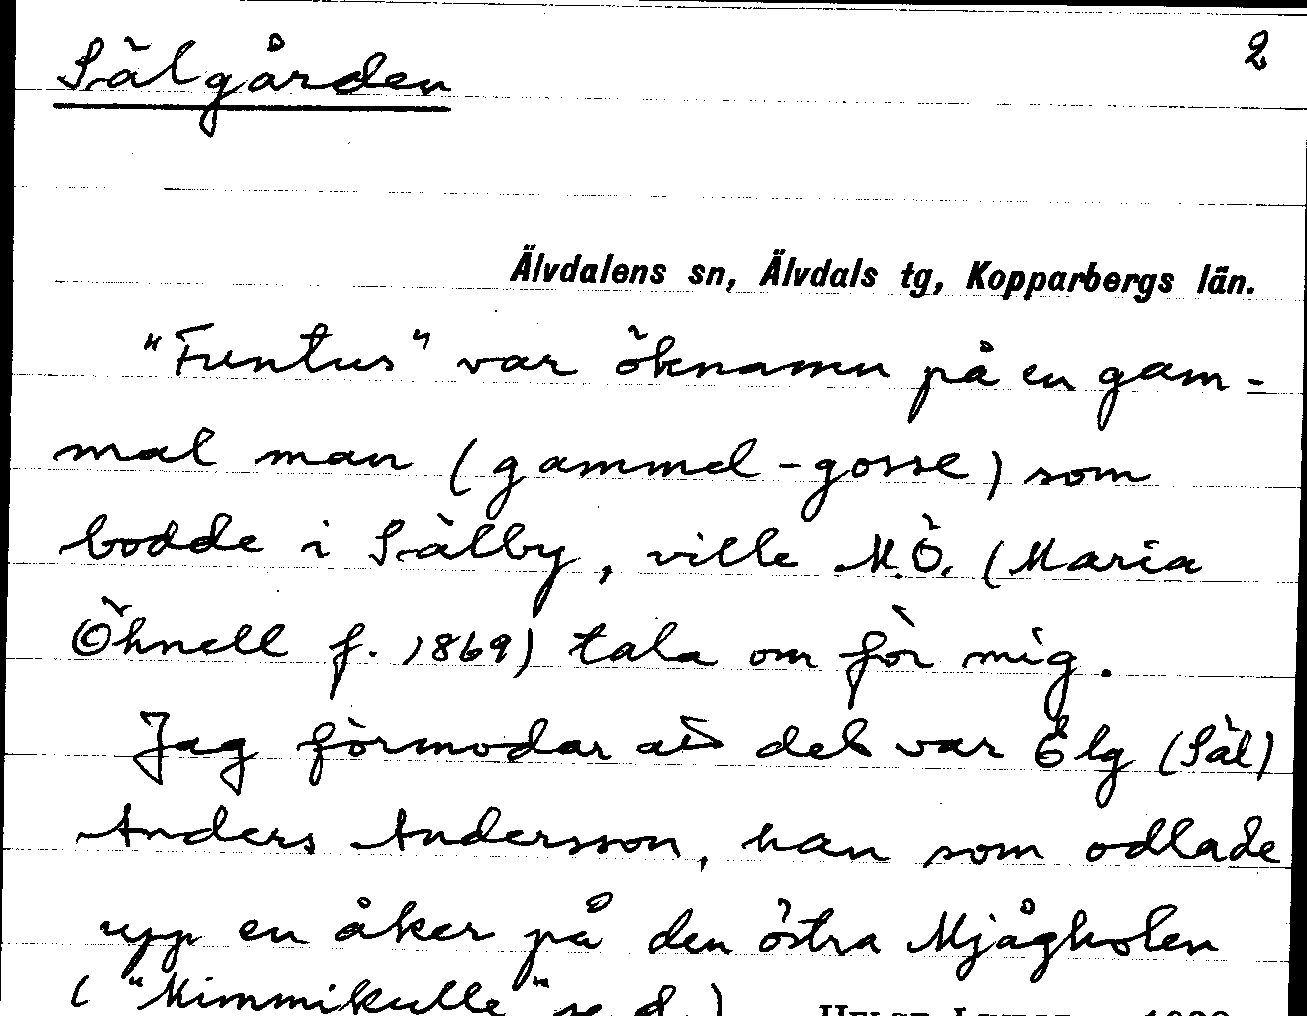 Sälgården 2
Älvdalens sn, Älvdals tg, Kopparbergs län.
"Funtus" var öknamn på en gam-
mal man (gammel-gosse) som
bodde i Sälby, ville M.Ö. (Maria
Öhnell f. 1869) tala om för mig.
Jag förmodar att det var Elg (Säl)
Anders Andersson, han som odlade
upp en åker på den östra Mjågholen
( "Mimmikulle" se d.)